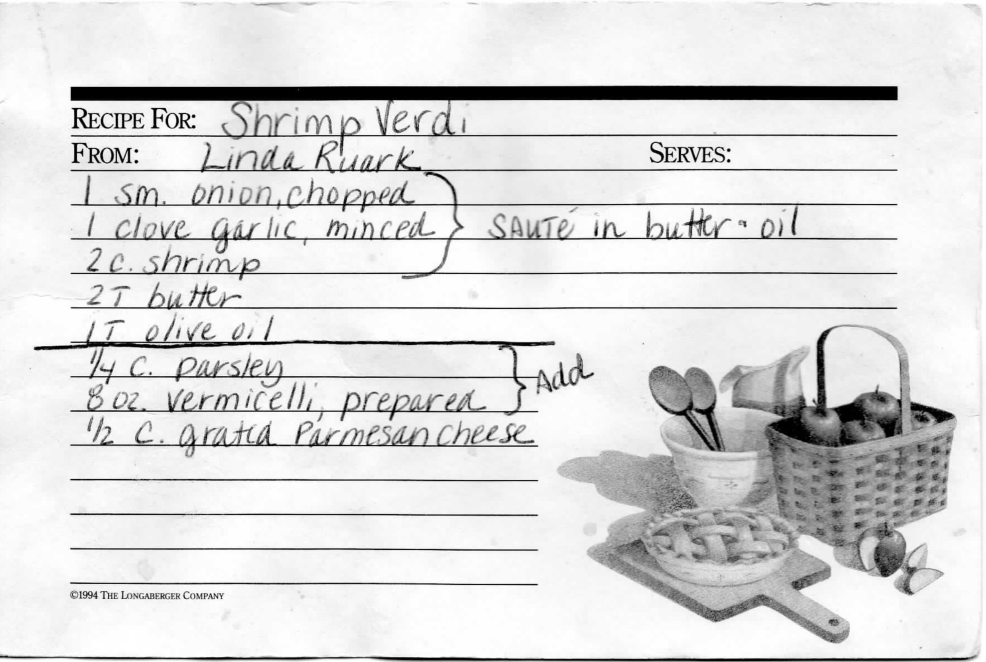 RECIPE FOR: Shrimp Verdi
FROM: Linda Ruark SERVES:
1 sm. onion, chopped
1 clove garlic, minced SAUTÉ in butter & oil
2 c. shrimp
2 T butter
1 T olive oil
1/4 C. parsley
8 oz. vermicelli, prepared Add
1/2 C. grated Parmesan cheese
©1994 THE LONGABERGER COMPANY